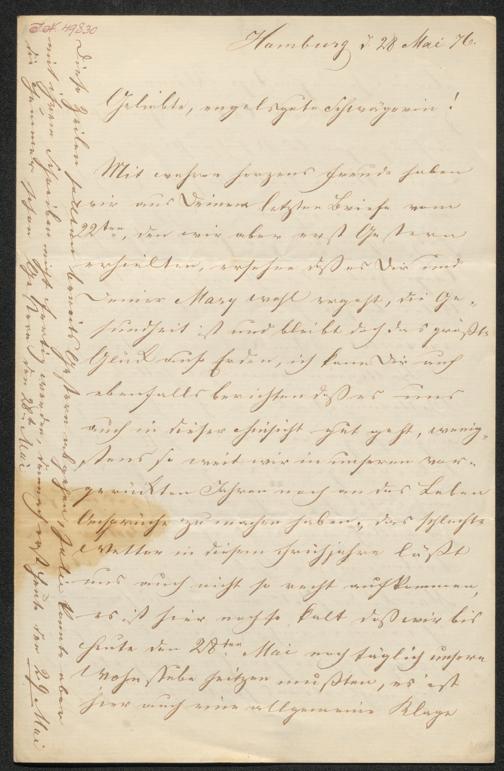 I.N. 49830
Hamburg d 28 Mai 76.
Geliebte, engelsgute Schwägerin!
Mit wahrer Herzens Freude haben
wir aus Deinem letzten Briefe vom
22ten, den wir aber erst Gestern
erhielten, ersehen daß es Dir und
Deiner Mary wohl ergeht, die Ge-
sundheit ist und bleibt doch das größte
Glück auf Erden, ich kann Dir auch
ebenfalls berichten daß es uns
auch in dieser Hinsicht gut geht, wenig-
stens so weit wir in unseren vor-
gerückten Jahren noch an das Leben
Ansprüche zu machen haben, das schlechte
Wetter in diesem Frühjahre läßt
uns auch nicht so recht aufkommen,
es ist hier noch so kalt daß wir bis
heute den 28ten Mai noch täglich unsere
Wohnstube heitzen mußten, es ist
hier auch eine allgemeine Klage
Diese Zeilen sollten bereits Gestern abgehen, Julie konnte aber
mit ihrem Schreiben nicht fertig werden, demnach erst heute den 29 Mai
schon Gestern den 28ten Mai